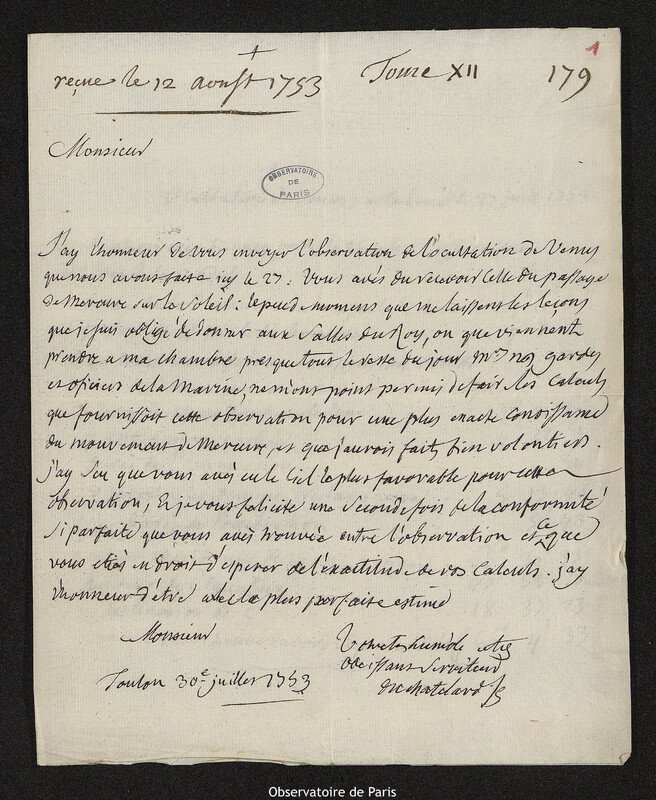 1
reçue le 12 aoust 1753 Tome XII 179
Monsieur
OBSERVATOIRE
DE
PARIS
J'ay l'honneur de vous envoyer l'observation de l'occultation de Venus
que nous avons faite icy le 27: Vous avés du recevoir celle du passage
de Mercure sur le Soleil: le peu de momens que me laissent les leçons
que je suis obligé de donner aux Salles du Roy, ou que viennent
prendre a ma chambre presque tout le reste du jour Mrs nos gardes
et officiers de la marine, ne m'ont point permis de faire les Calculs
que fournissoit cette observation pour une plus exacte conoissance
du mouvement de Mercure, et que j'aurois faits bien volontiers.
j'ay seu que vous avés eu le Ciel le plus favorable pour cette
observation, Et je vous felicite une seconde fois de la conformité
si parfaite que vous avés trouvée entre l'observation et ce que
vous etiés en droit d'esperer de l'éxactitude de vos Calculs. j'ay
l'honneur d'étre avec la plus parfaite estime
Monsieur
Votre tres humble et tres
obeissant Serviteur
Toulon 30e juillet 1753
Du chatelard J
Observatoire de Paris